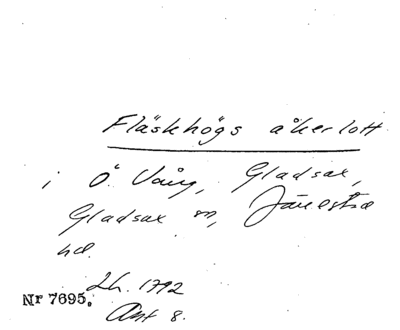 Fläskhögs åkerlott
i Ö. Vång, Gladsax,
Gladsax sn, Järrestad
hd.
Lh. 1792
Nr 7695.
Akt 8.